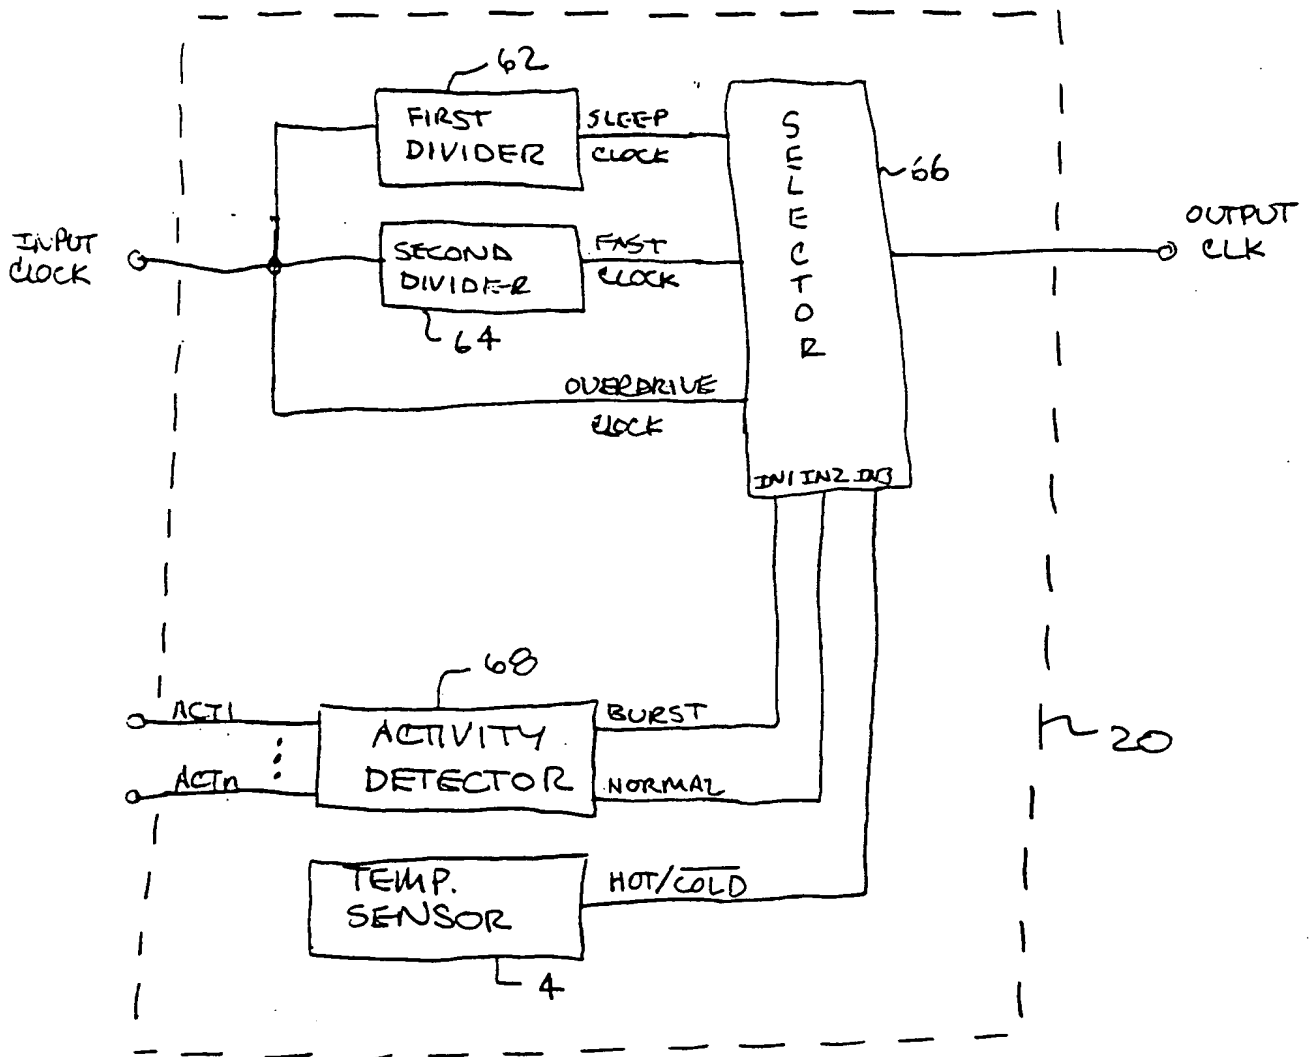 62
FIRST
DIVIDER
SLEEP
CLOCK
S
E
L
E
C
T
O
R
66
INPUT
CLOCK
SECOND
DIVIDER
FAST
CLOCK
64
OUTPUT
CLK
OVERDRIVE
CLOCK
IN1 IN2 IN3
68
ACT1
ACTn
ACTIVITY
DETECTOR
BURST
NORMAL
20
TEMP.
SENSOR
HOT/COLD
4